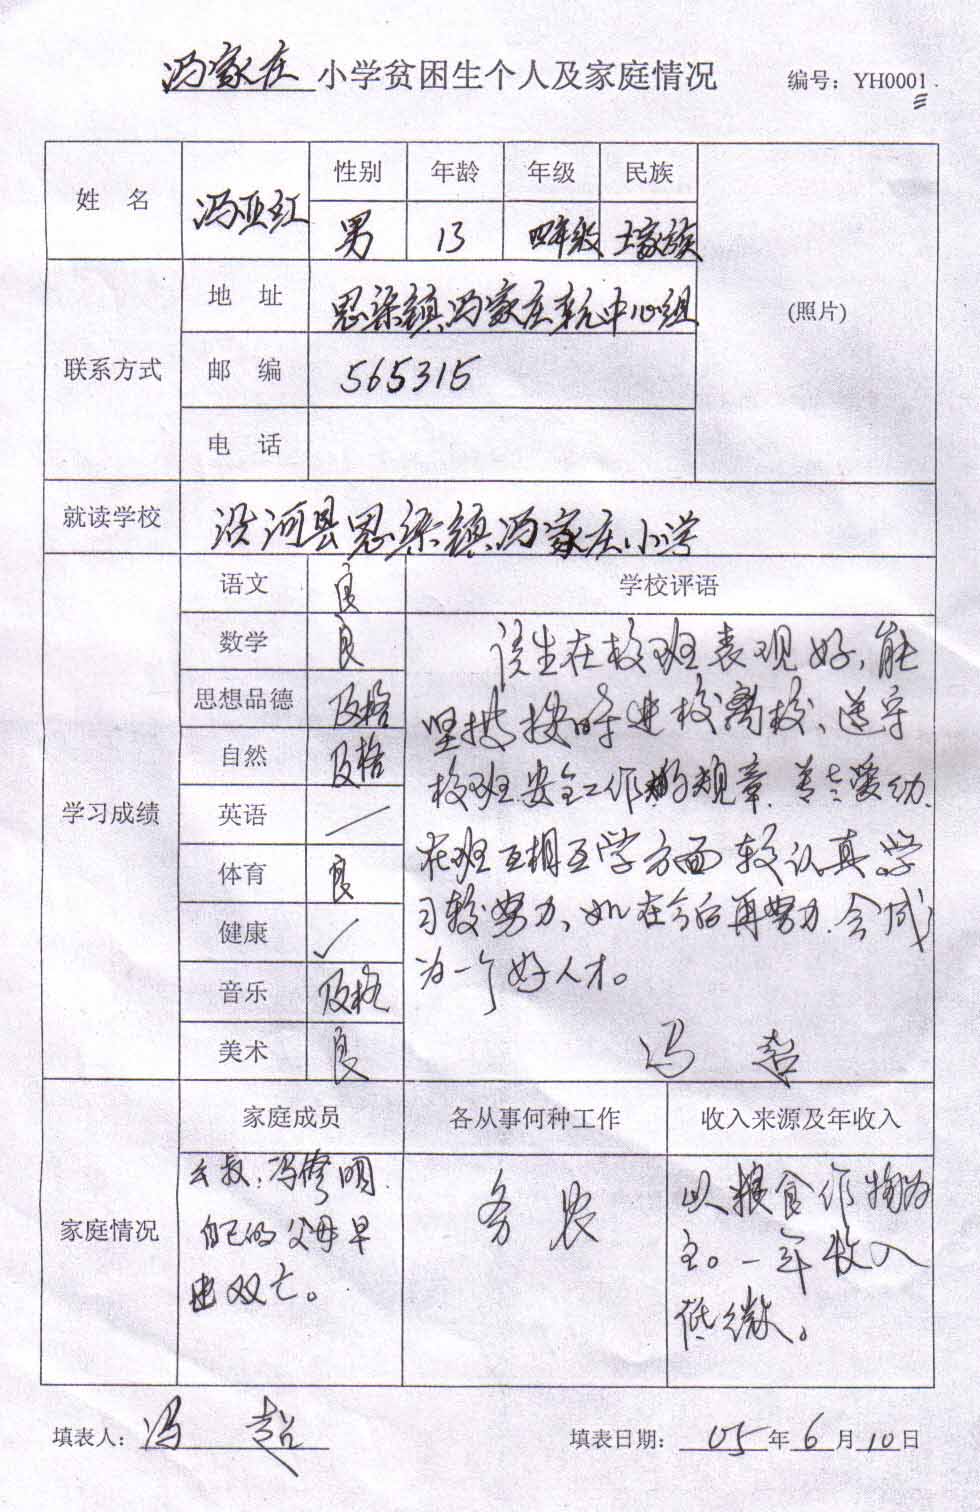 冯家庄小学贫困生个人及家庭情况 编号：YH0001
姓 名 冯亚红 性别 年龄 年级 民族
男 13 四年级 土家族
(照片)
联系方式 地 址 思渠镇冯家庄村中心组
邮 编 565315
电 话
就读学校 沿河县思渠镇冯家庄小学
学习成绩 语文 良 学校评语
数学 良
思想品德 及格
自然 及格
英语 —
体育 良
健康 ✓
音乐 及格
美术 良
该生在校班表现好，能
坚持按时进校离校、遵守
校班安全工作的规章、尊老爱幼、
在班互相互学方面较认真学
习较努力、如在今后再努力、会成
为一个好人才。
冯 超
家庭情况 家庭成员 各从事何种工作 收入来源及年收入
叔：冯修明.
自己的父母早
已双亡。
务农
以粮食作物为
主。一年收入
低微。
填表人：冯 超 填表日期：05年6月10日